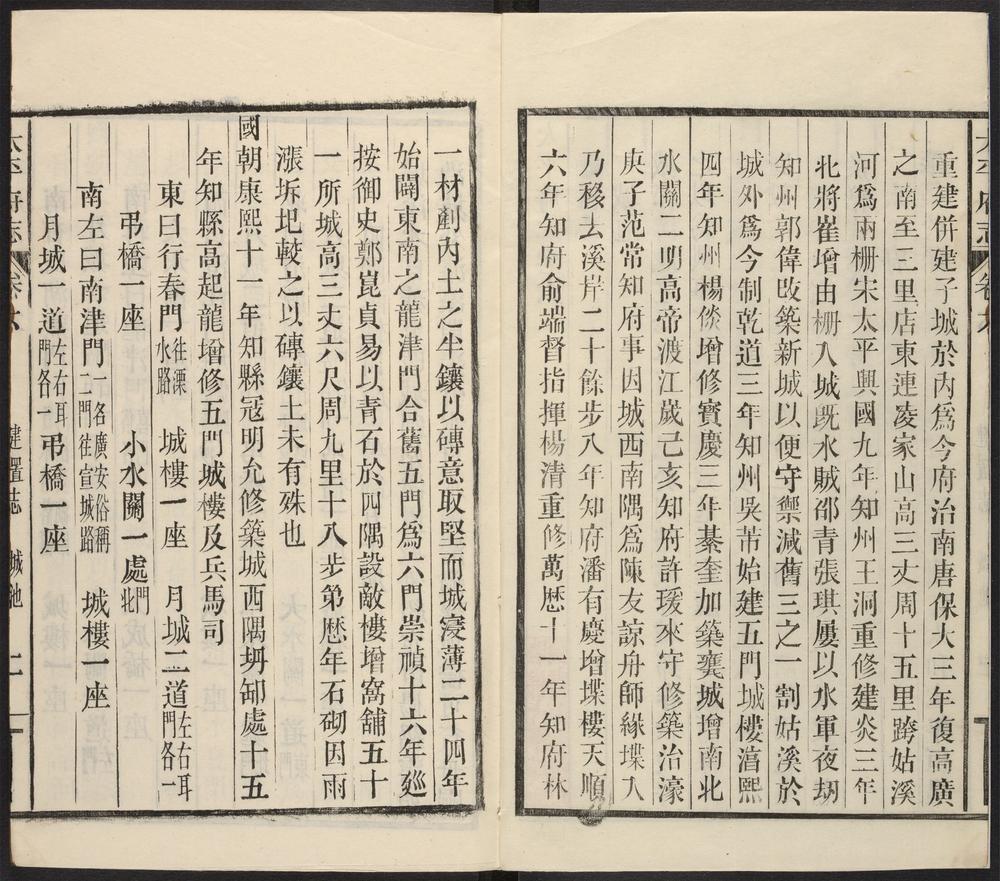 重建併建子城於內爲今府治南唐保大三年復高廣
之南至三里店東連淩家山高三丈周十五里蹲姑溪
河爲兩柵宋太平興國九年知州王洞重修建炎三年
北將崔增由柵入城旣水賊邵青張琪屢以水軍夜刼
知州郭偉改築新城以便守禦減舊三之一割姑溪於
城外爲今制乾道三年知州吳芾始建五門城樓淳熙
四年知州楊倓增修寶慶三年綦奎加築甕城增南北
水關二明高帝渡江歲己亥知府許瑗來守修築治濠
庚子范常知府事因城西南隅爲陳友諒舟師緣堞入
乃移去溪岸二十餘步八年知府潘有慶增堞樓天順
六年知府俞端督指揮楊清重修萬歷十一年知府林
一材劃內土之半鑲以磚意取堅而城寖薄三十四年
始闢東南之龍津門合舊五門爲六門崇禎十六年廵
按御史鄭崑貞易以青石於四隅設敵樓增窩舖五十
一所城高三丈六尺周九里十八步第歷年石砌因雨
漲坼圯較之以磚鑲土未有殊也
國朝康熙十一年知縣冠明允修築城西隅坍卸處十五
年知縣高起龍增修五門城樓及兵馬司
東曰行春門往溧水路 城樓一座 月城二道左右耳門各一
弔橋一座 小水關一處門北
南左曰南津門一名廣安俗稱二門往宣城路 城樓一座
月城一道左右耳門各一弔橋一座
太平府志 卷 建置志 城池